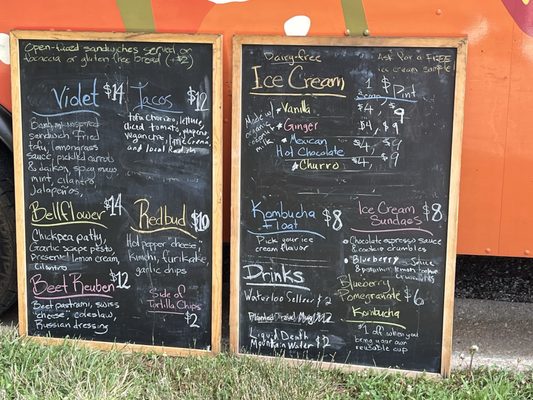 Open-faced sandwiches served on
focaccia or gluten free bread (+$2)
Violet $14
Banh mi inspired
sandwich. Fried
tofu, lemongrass
sauce, pickled carrots
& daikon, spicy mayo
mint, cilantro
Jalapeños,
Tacos $12
tofu chorizo, lettuce,
diced tomato, jalapeno,
vegan cheese, lime crema,
and local Radish
Bellflower $14
Chickpea patty,
Garlic scape pesto
Preserved lemon cream,
cilantro
Redbud $10
Hot pepper cheese,
Kimchi, furikake,
garlic chips
Beet Reuben $12
Beet pastrami, swiss
"cheese", coleslaw,
Russian dressing
Side of
Tortilla Chips
$2
Dairy-free
Ice Cream
Ask for a FREE
ice cream sample
Made w/
organic
coconut
milk
1 scoop
Pint
Vanilla $4 $9
Ginger $4 $9
Mexican
Hot Chocolate $4 $9
Churro $4 $9
Kombucha
Float $8
Pick your ice
cream flavor
Ice Cream
Sundaes $8
Chocolate espresso sauce
& cookie crumbles
Blueberry sauce
& lemon cookie
crumbles
Drinks
Waterloo Seltzer $2
$2
Liquid Death
Mountain Water $2
Blueberry
Pomegranate $6
Kombucha
$1 off when you
bring your own
reusable cup